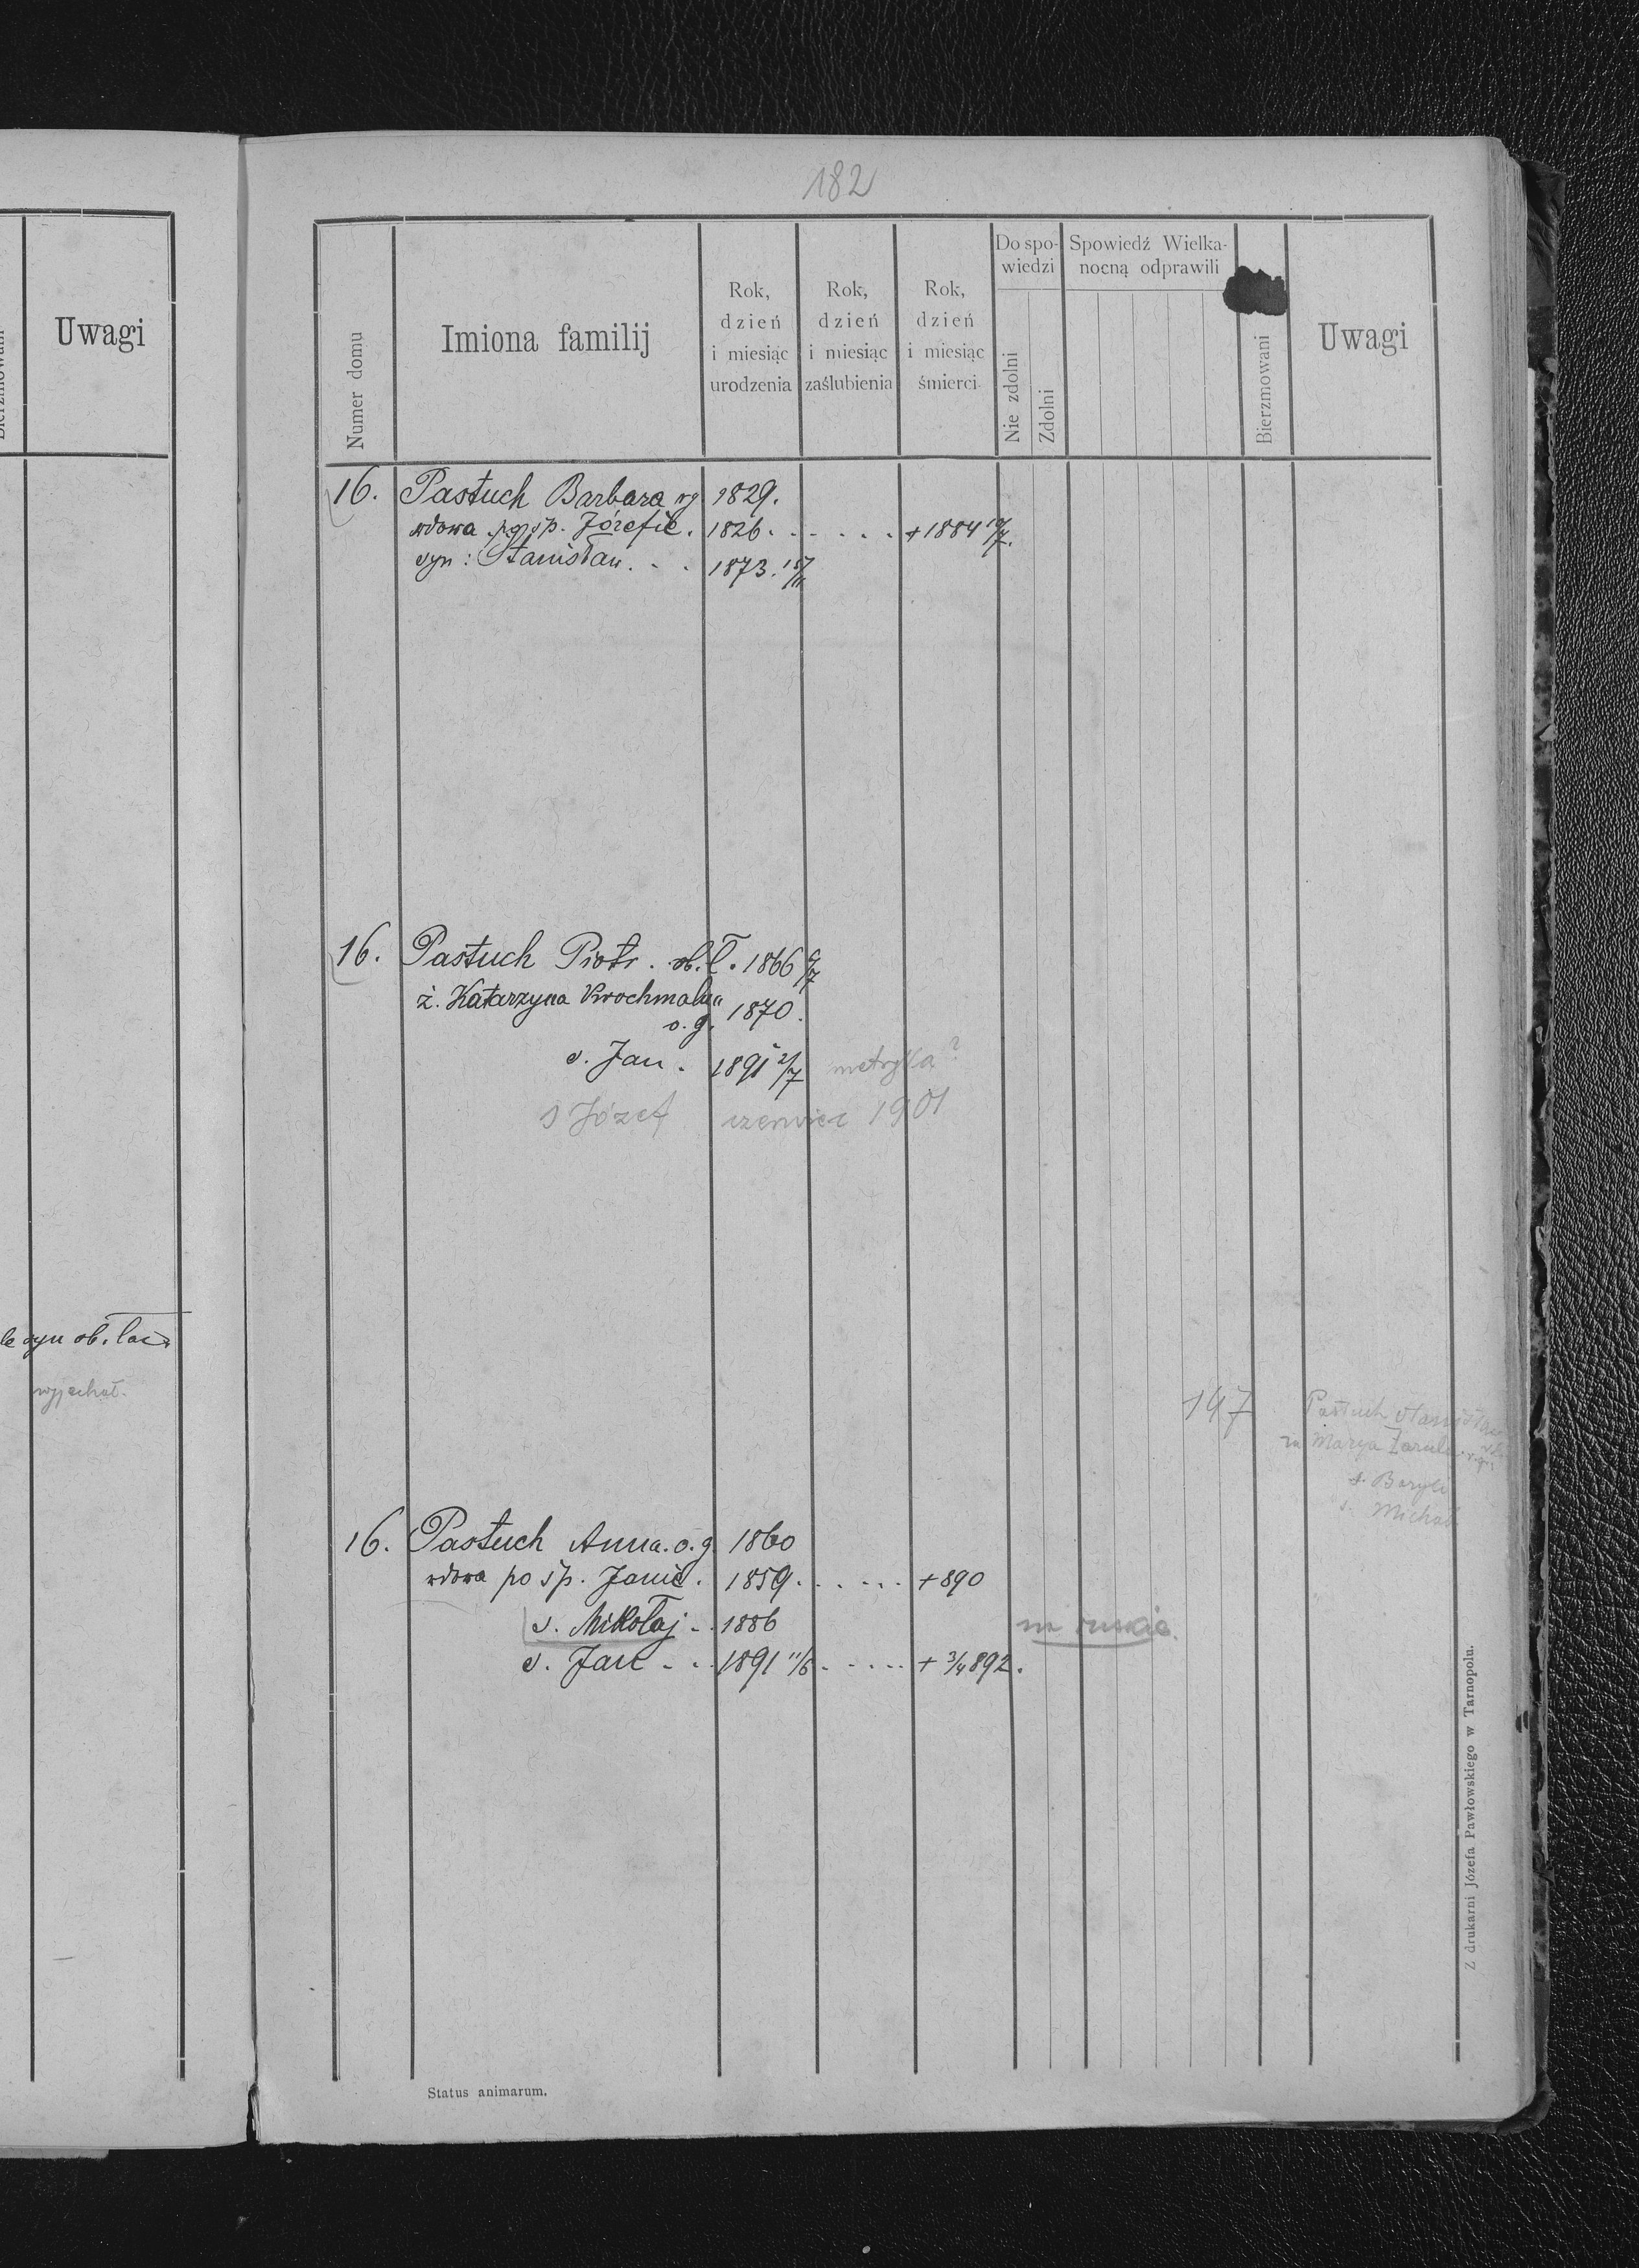 182
Uwagi
Numer domu
Imiona familij
Rok,
dzień
i miesiąc
urodzenia
Rok,
dzień
i miesiąc
zaślubienia
Rok,
dzień
i miesiąc
śmierci
Do spo-
wiedzi
Nie zdolni
Zdolni
Spowiedź Wielka-
nocną odprawili
Bierzmowani
Uwagi
16. Pastuch Barbara 1829.
wdowa po śp. Józefie. 1826. . . . . . . +1884
syn: Stanisław. . . 1873.
16. Pastuch Piotr. ob. ł. 1866
ż. Katarzyna Krochmalna
o. g. 1870.
s. Jan. 1891 2/7 metryka?
s Józef czerwiec 1901
syn ob. łac.
wyjechał.
147 Pastuch Stanisław
Marya
s. Bazyli
s. Michał
16. Pastuch Anna. o. g. 1860
wdowa po śp. Janie. 1859. . . . . . +890
s. Mikołaj - . 1886 na ruskie.
s. Jan - . . 1891 11/6 . . . . . + 3/4 892.
Status animarum.
Z drukarni Józefa Pawłowskiego w Tarnopolu.